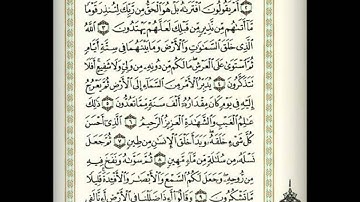 أَمْ يَقُولُونَ ٱفْتَرَىٰهُ بَلْ هُوَ ٱلْحَقُّ مِن رَّبِّكَ لِتُنذِرَ قَوْمًا
مَّآ أَتَىٰهُم مِّن نَّذِيرٍ مِّن قَبْلِكَ لَعَلَّهُمْ يَهْتَدُونَ ٣ ٱللَّهُ
ٱلَّذِى خَلَقَ ٱلسَّمَٰوَٰتِ وَٱلْأَرْضَ وَمَا بَيْنَهُمَا فِى سِتَّةِ أَيَّامٍ
ثُمَّ ٱسْتَوَىٰ عَلَى ٱلْعَرْشِ مَا لَكُم مِّن دُونِهِۦ مِن وَلِىٍّ وَلَا شَفِيعٍ أَفَلَا
تَتَذَكَّرُونَ ٤ يُدَبِّرُ ٱلْأَمْرَ مِنَ ٱلسَّمَآءِ إِلَى ٱلْأَرْضِ ثُمَّ يَعْرُجُ
إِلَيْهِ فِى يَوْمٍ كَانَ مِقْدَارُهُۥٓ أَلْفَ سَنَةٍ مِّمَّا تَعُدُّونَ ٥ ذَٰلِكَ
عَٰلِمُ ٱلْغَيْبِ وَٱلشَّهَٰدَةِ ٱلْعَزِيزُ ٱلرَّحِيمُ ٦ ٱلَّذِىٓ أَحْسَنَ
كُلَّ شَىْءٍ خَلَقَهُۥ وَبَدَأَ خَلْقَ ٱلْإِنسَٰنِ مِن طِينٍ ٧ ثُمَّ جَعَلَ
نَسْلَهُۥ مِن سُلَٰلَةٍ مِّن مَّآءٍ مَّهِينٍ ٨ ثُمَّ سَوَّىٰهُ وَنَفَخَ فِيهِ
مِن رُّوحِهِۦ وَجَعَلَ لَكُمُ ٱلسَّمْعَ وَٱلْأَبْصَٰرَ وَٱلْأَفْـِٔدَةَ قَلِيلًا
مَّا تَشْكُرُونَ ٩ وَقَالُوٓا۟ أَءِذَا ضَلَلْنَا فِى ٱلْأَرْضِ أَءِنَّا لَفِى